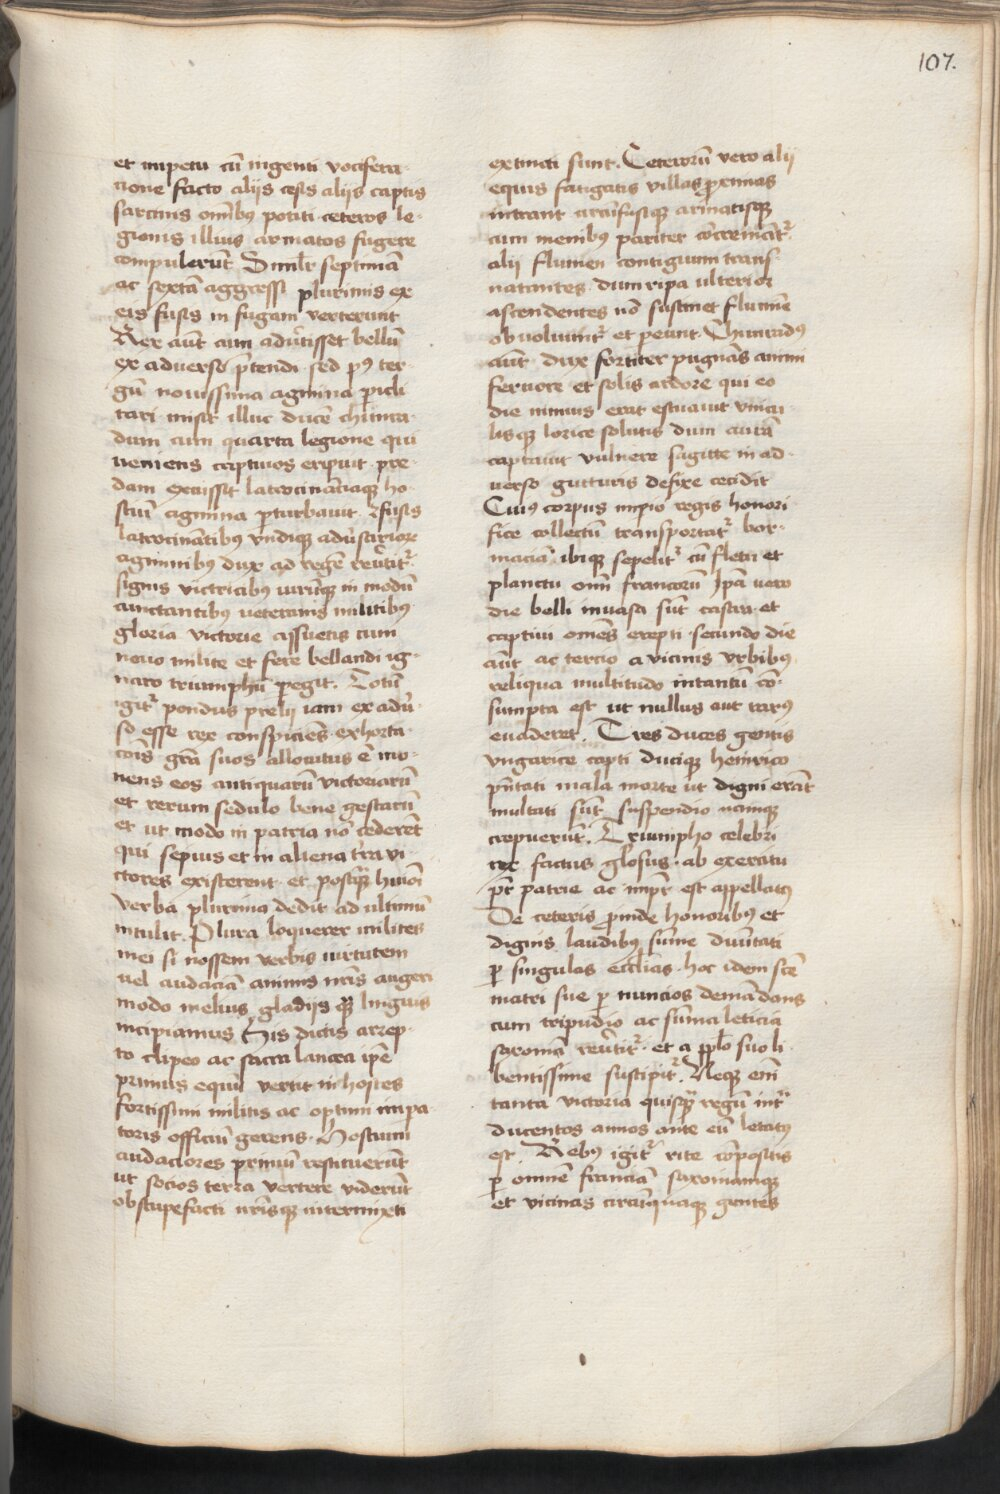 107.
et impetu cū ingenti vocifera-
cione facto aliis cesis aliis captis
sarcinis omībꝰ potiti ceteros le-
gionis illius armatos fugere
compulerūt Simil'r septimā
ac sextā aggressi plurimis ex
eis fusis in fugam verterunt
Rex aūt cum adv'tisset bellū
ex adverso p̄tendi sed pꝰ ter-
gū novissima agmina picli
tari misit illuc ducē chunra
dum cum quarta legione qui
veniens captivos eripuit pre-
dam excussit latrocinātiaqꝫ ho-
stiū agmina p̱turbavit fusis
latrocinātibꝰ vndiqꝫ adv'sarioꝝ
agminibꝰ dux ad regē rev'titr
signis victricibꝰ mirūqꝫ in modū
cunctantibꝰ veteranis militibꝰ
gloria victorie assuetis cum
novo milite et fere bellandi ig-
naro triumphū p̱egit. Totū
igitr pondus prelij iam ex adv'
so esse rex conspiciens exhorta-
cōis grā suos allocutus ē mo-
nens eos antiquarū victoriarū
et rerum sedulo bene gestarū
et ut modo in patria nō cederēt
qui sepius et in aliena t'ra vi-
ctores existerent et postqꝫ huiꝰmōi
verba plurima dedit ad ultimū
intulit. Plura loquerer milites
mei si nossem verbis virtutem
vel audaciā animis nr̄is augeri
modo melius gladijs qꝫ linguis
incipiamus His dictis arrep-
to clipeo ac sacra lancea ip̄e
primus equū vertit in hostes
fortissimi militis ac optimi impa-
toris officiū gerens. Hostium
audaciores primū restiterūt
ut socios terga vertere viderūt
obstupefacti nr̄isqꝫ intermixti
extincti sunt. Ceterorū vero alij
equis fatigatis villas p̱ximas
intrant circūfusiqꝫ armatisqꝫ
cum menibꝰ pariter cōcremātr
alij flumen contiguum trans-
natantes dum ripa ulterior
ascendentes nō sustinet flumīe
obvoluūtr et peunt. Chunradꝰ
aūt dux fortiter pugnās animi
fervore et solis ardore qui eo
die nimius erat estuavit vincu-
lisqꝫ lorice solutis dum aurā
captavit vulnere sagitte in ad-
verso gutturis defixe cecidit
Cuiꝰ corpus impio regis honori-
fice collectū transportatr bor-
maciā ibiqꝫ sepelitr cū fletu et
planctu omī francorū Ip̄a vero
die belli invasa sūt castra et
captivi omēs erepti. secundo die
aūt ac tercio a vicinis vrbibꝰ
reliqua multitudo intantū cō-
sumpta est ut nullus aut rarꝰ
evaderet. Tres duces gentis
vngarice capti duciqꝫ heinrico
p̄ntati mala morte ut digni erāt
multati sūt suspendio namqꝫ
crepuerūt. Triumpho celebri
rex factus gl'osus. ab exercitu
pr̄ patrie ac impr̄ est appellatꝰ
De ceteris p̱inde honoribꝰ et
dignis laudibꝰ sūme diuītati
p̱ singulas eccl'ias. hoc idem scē
matri sue p̱ nuncios demādans
cum tripudio ac sūma leticia
saxoniā rev'titr. et a ppl'o suo li-
bentissime suscipitr. Neqꝫ enī
tanta victoria quisqꝫ regū intr
ducentos annos ante eū letatꝰ
est. Rebꝰ igitr rite cōpositis
p̱ omnē franciā saxoniamqꝫ
et vicinas circūquaqꝫ gentes